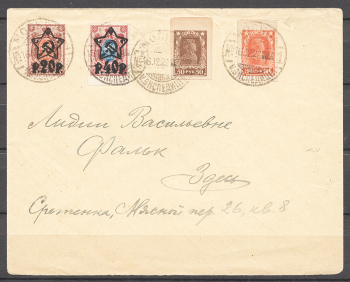 р.20р. р.40р.
РУБ.
Лидии Васильевне
Фальк
Здесь
Сретенка, Мясной пер 26, кв. 8